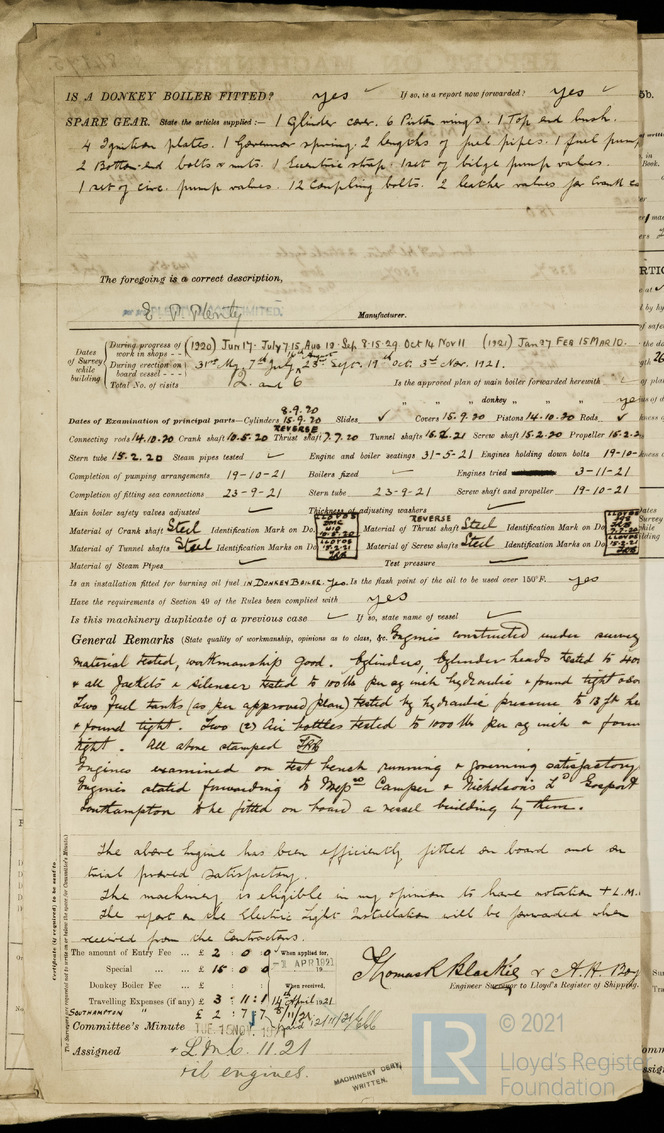 IS A DONKEY BOILER FITTED? yes ✓ If so, is a report now forwarded? yes ✓
SPARE GEAR. State the articles supplied :— 1 Cylinder cover. 6 Piston rings. 1 Top end bush.
4 Ignition plates. 1 Governor spring. 2 lengths of fuel pipes. 1 fuel pump
2 Bottom end bolts & nuts. 1 Eccentric strap. 1 set of bilge pump valves.
1 set of circ. pump valves. 12 Coupling bolts. 2 leather valves for Crank
The foregoing is a correct description,
E. P. Plenty LIMITED. Manufacturer.
Dates of Survey while building
During progress of work in shops - - (1920) Jun 17. July 7.15. Aug 19. Sep. 8.15.29. Oct 14 Nov 11 (1921) Jan 27 FEB 15 MAR 10.
During erection on board vessel - - - 31st May, 7th July, 16th August, 23rd Sept. 19th Oct. 3rd Nov. 1921.
Total No. of visits 12 and 6 Is the approved plan of main boiler forwarded herewith ✓
" " " donkey " " " yes
8.9.20
Dates of Examination of principal parts—Cylinders 15.9.20 Slides ✓ Covers 15.9.20 Pistons 14.10.20 Rods ✓
Connecting rods 14.10.20 Crank shaft 10.5.20 REVERSE Thrust shaft 7.7.20 Tunnel shafts 15.2.21 Screw shaft 15.2.20 Propeller 15.2.2
Stern tube 15.2.20 Steam pipes tested ✓ Engine and boiler seatings 31-5-21 Engines holding down bolts 19-10-
Completion of pumping arrangements 19-10-21 Boilers fixed ✓ Engines tried 3-11-21
Completion of fitting sea connections 23-9-21 Stern tube 23-9-21 Screw shaft and propeller 19-10-21
Main boiler safety valves adjusted ✓ Thickness of adjusting washers ✓
Material of Crank shaft Steel Identification Mark on Do. LLOYDS Material of REVERSE Thrust shaft Steel Identification Mark on Do. LLOYDS
Material of Tunnel shafts Steel Identification Marks on Do. LLOYDS 15.2.21 Material of Screw shafts Steel Identification Marks on Do. LLOYDS 15.2.21
Material of Steam Pipes ✓ Test pressure ✓
Is an installation fitted for burning oil fuel IN DONKEY BOILER. Yes. Is the flash point of the oil to be used over 150°F. yes
Have the requirements of Section 49 of the Rules been complied with yes
Is this machinery duplicate of a previous case ✓ If so, state name of vessel ✓
General Remarks (State quality of workmanship, opinions as to class, &c. Engines constructed under survey
material tested, workmanship good. Cylinders, Cylinder heads tested to 400
& all Jackets & silencer tested to 100 lbs per sq inch hydraulic & found tight
Two fuel tanks (as per approved plan) tested by hydraulic pressure to 13 ft he
& found tight. Two (2) Air bottles tested to 1000 lbs per sq inch & foun
tight. All above stamped
Engines examined on test bench running & governing satisfactory
Engines stated forwarding to Messrs Camper & Nicholson's Ld Gosport
Southampton to be fitted on board a vessel building by them.
The above Engine has been efficiently fitted on board and on
trial proved satisfactory.
The machinery is eligible in my opinion to have notation + L.M.
The report on the Electric Light Installation will be forwarded when
received from the Contractors.
Certificate (if required) to be sent to
The Surveyors are requested not to write on or below the space for Committee's Minute.
The amount of Entry Fee ... £ 2 : 0 : 0 When applied for,
Special ... £ 15 : 0 : 0 -1 APR 1921
Donkey Boiler Fee ... £ : : When received,
Travelling Expenses (if any) £ 3 : 11 : 1 14th April 1921
SOUTHAMPTON " £ 2 : 7 : 7 8/11/21
Thomas R Blackie & A. H. Boy
Engineer Surveyor to Lloyd's Register of Shipping.
Committee's Minute TUE. 15 NOV. 19 paid 12/11/21
Assigned + L.M.C. 11.21
oil engines.
MACHINERY CERT. WRITTEN.
LR © 2021
Lloyd's Register
Foundation